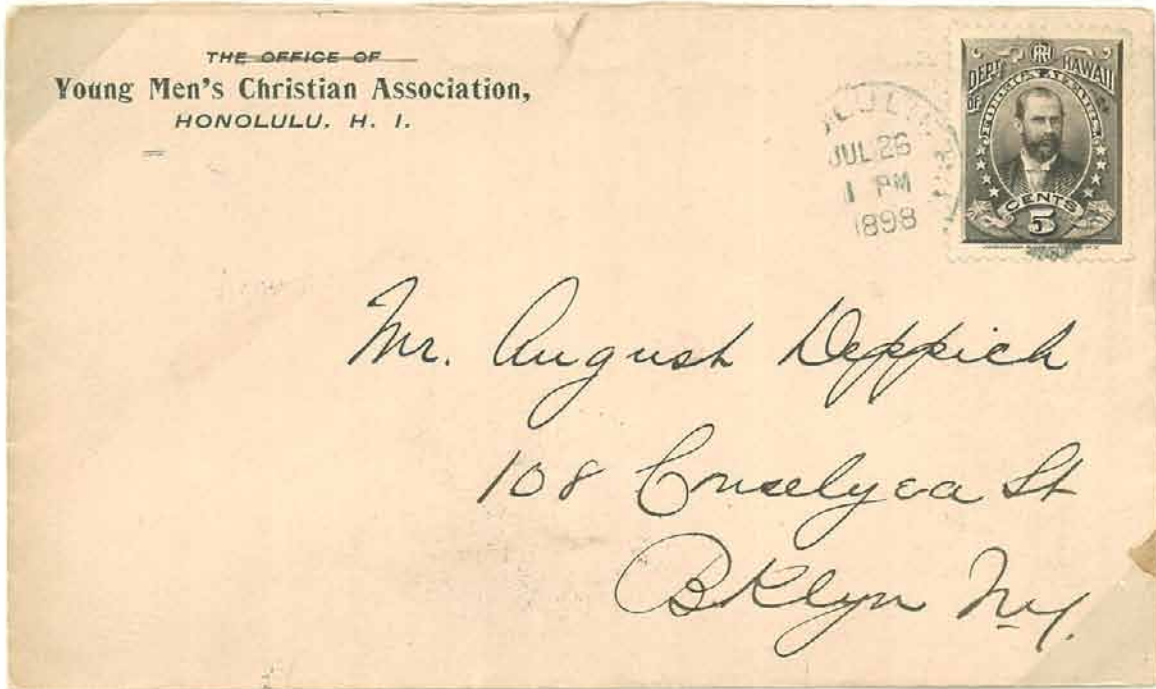 THE OFFICE OF
Young Men's Christian Association,
HONOLULU. H. I.
JUL 26
1 PM
1898
DEPT. OF FOREIGN AFFAIRS. HAWAII
CENTS
5
Mr. August Deppich
108 Conselyea St
Bklyn N.Y.